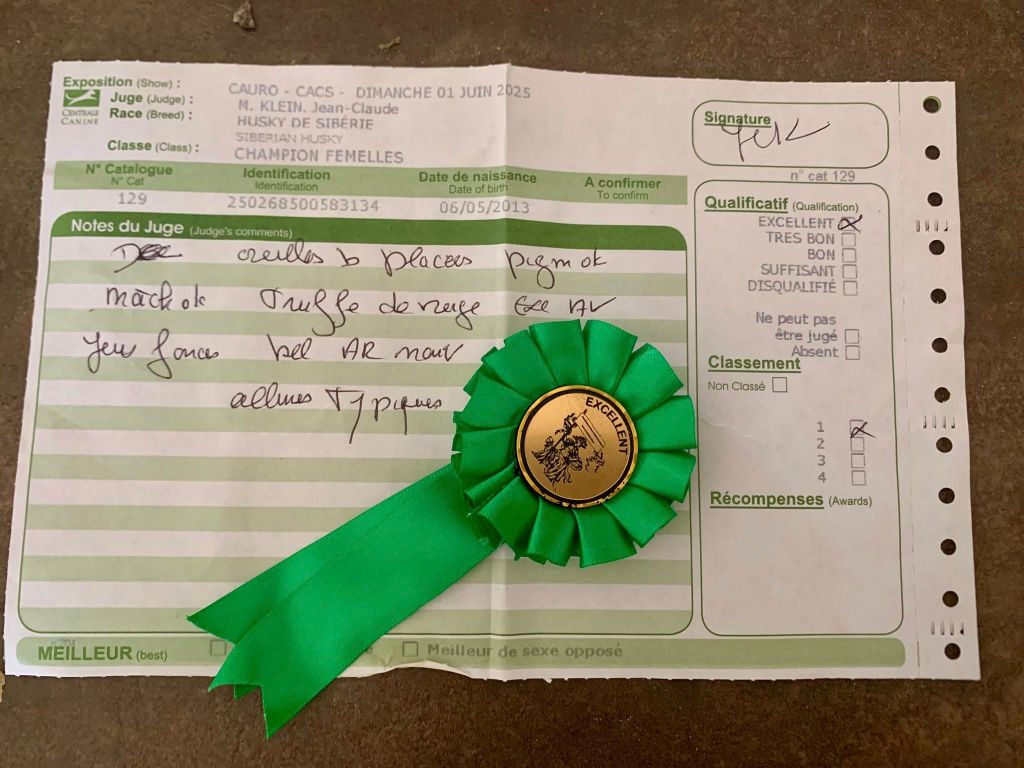 Exposition (Show) : CAURO - CACS - DIMANCHE 01 JUIN 2025
Juge (Judge) : M. KLEIN. Jean-Claude
Race (Breed) : HUSKY DE SIBÉRIE
SIBERIAN HUSKY
CENTRALE CANINE
Classe (Class) : CHAMPION FEMELLES
N° Catalogue Identification Date de naissance A confirmer
N° Cat Identification Date of birth To confirm
129 250268500583134 06/05/2013
Notes du Juge (Judge's comments)
oreilles b placées pigm ok
mach ok Truffe de neige Exc AV
Yeux foncés bel AR mouv
allures Typiques
EXCELLENT
MEILLEUR (best)
Meilleur de sexe opposé
Signature
n° cat 129
Qualificatif (Qualification)
EXCELLENT
TRES BON
BON
SUFFISANT
DISQUALIFIÉ
Ne peut pas
être jugé
Absent
Classement
Non Classé
1
2
3
4
Récompenses (Awards)